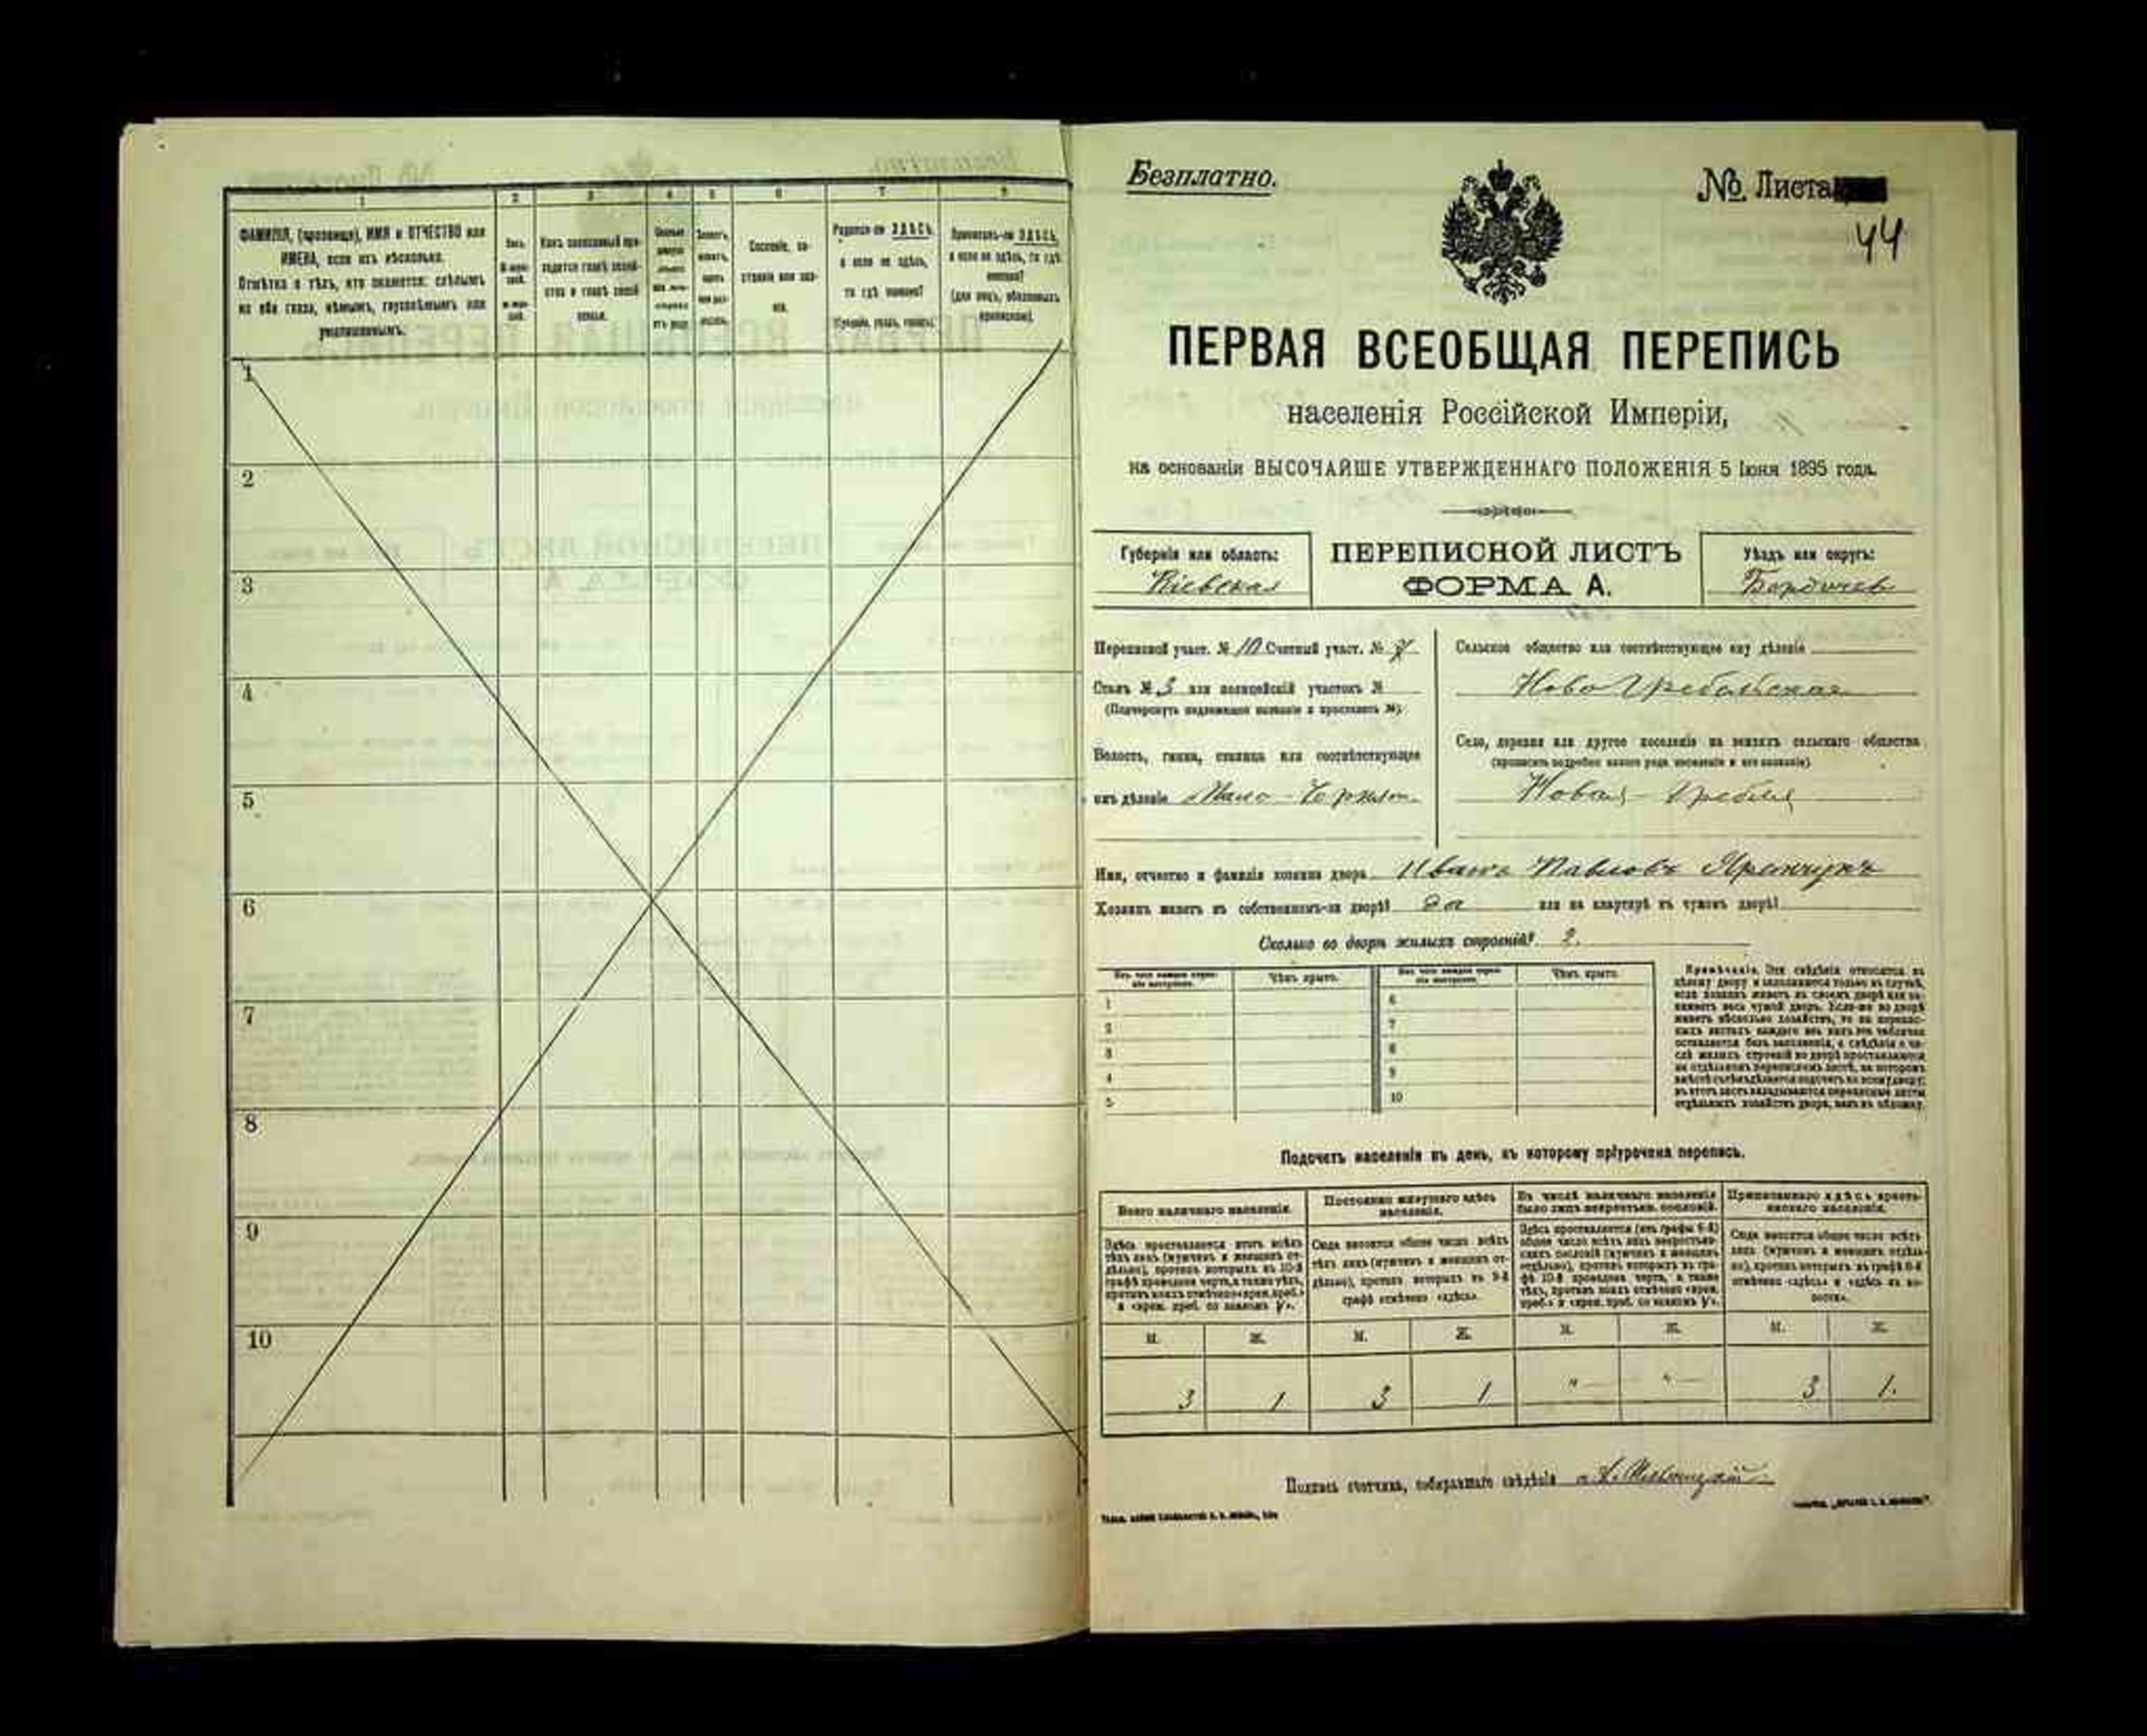 1 2 3 4 5 6 7 8
ФАМИЛІЯ, (прозвище), ИМЯ и ОТЧЕСТВО или
ИМЕНА, если ихъ нѣсколько.
Отмѣтка о тѣхъ, кто окажется: слѣпымъ
на оба глаза, нѣмымъ, глухонѣмымъ или
умалишеннымъ.
Полъ.
Какъ записанный при-
ходится главѣ хозяй-
ства и главѣ своей
семьи.
Сословіе, со-
стояніе или зва-
ніе.
Родился-ли ЗДѢСЬ,
а если не здѣсь,
то гдѣ именно?
(Губернія, уѣздъ, городъ).
Приписанъ-ли ЗДѢСЬ,
а если не здѣсь, то гдѣ
именно?
(для лицъ, обязанныхъ
припискою).
1
2
3
4
5
6
7
8
9
10
Безплатно.
№ Листа
44
ПЕРВАЯ ВСЕОБЩАЯ ПЕРЕПИСЬ
населенія Россійской Имперіи,
на основаніи ВЫСОЧАЙШЕ УТВЕРЖДЕННАГО ПОЛОЖЕНІЯ 5 Іюня 1895 года.
Губернія или область:
Кіевская
ПЕРЕПИСНОЙ ЛИСТЪ
ФОРМА А.
Уѣздъ или округъ:
Бердичев
Переписной участ. № 10 Счетный участ. №
Станъ № 3 или полицейскій участокъ №
(Подчеркнуть надлежащее названіе и проставить №).
Волость, гмина, станица или соотвѣтствующее
имъ дѣленіе Мало-
Сельское общество или соотвѣтствующее ему дѣленіе
Ново Гребельское
Село, деревня или другое поселеніе на земляхъ сельскаго общества
(прописать подробно какого рода поселеніе и его названіе)
Новая Гребля
Имя, отчество и фамилія хозяина двора Иванъ Павловъ
Хозяинъ живетъ въ собственномъ-ли дворѣ? да или на квартирѣ въ чужомъ дворѣ?
Сколько во дворѣ жилыхъ строеній? 2.
Изъ чего каждое строе-
ніе построено.
Чѣмъ крыто.
Изъ чего каждое строе-
ніе построено.
Чѣмъ крыто.
1 6
2 7
3 8
4 9
5 10
Примѣчаніе. Эти свѣдѣнія относятся къ
цѣлому двору и заполняются только въ случаѣ,
если хозяинъ живетъ въ своемъ дворѣ или за-
нимаетъ весь чужой дворъ. Если-же во дворѣ
живетъ нѣсколько хозяйствъ, то на перепис-
ныхъ листахъ каждаго изъ нихъ эта табличка
оставляется безъ заполненія, а свѣдѣнія о чи-
слѣ жилыхъ строеній во дворѣ проставляются
на отдѣльномъ переписномъ листѣ, на которомъ
вмѣстѣ съ тѣмъ дѣлается подсчетъ по всему двору;
въ этотъ листъ вкладываются переписные листы
отдѣльныхъ хозяйствъ двора, какъ въ обложку.
Подсчетъ населенія въ день, къ которому пріурочена перепись.
Всего наличнаго населенія.
Постоянно живущаго здѣсь
населенія.
Въ числѣ наличнаго населенія
было лицъ некрестьян. сословій.
Приписаннаго здѣсь кресть-
янскаго населенія.
Здѣсь проставляется итогъ всѣхъ
тѣхъ лицъ (мужчинъ и женщинъ от-
дѣльно), противъ которыхъ въ 10-й
графѣ проведена черта, а также тѣхъ,
противъ коихъ отмѣчено «врем. преб.»
и «врем. преб. со знакомъ V».
Сюда вносится общее число всѣхъ
тѣхъ лицъ (мужчинъ и женщинъ от-
дѣльно), противъ которыхъ въ 9-й
графѣ отмѣчено «здѣсь».
Здѣсь проставляется (изъ графы 6-й)
общее число всѣхъ лицъ некрестьян-
скихъ сословій (мужчинъ и женщинъ
отдѣльно), противъ которыхъ въ гра-
фѣ 10-й проведена черта, а также
тѣхъ, противъ коихъ отмѣчено «врем.
преб.» и «врем. преб. со знакомъ V».
Сюда вносится общее число всѣхъ
лицъ (мужчинъ и женщинъ отдѣль-
но), противъ которыхъ въ графѣ 8-й
отмѣчено «здѣсь» и «здѣсь въ во-
лости».
М. Ж. М. Ж. М. Ж. М. Ж.
3 1 3 1 " " 3 1.
Подпись счетчика, собиравшаго свѣдѣнія